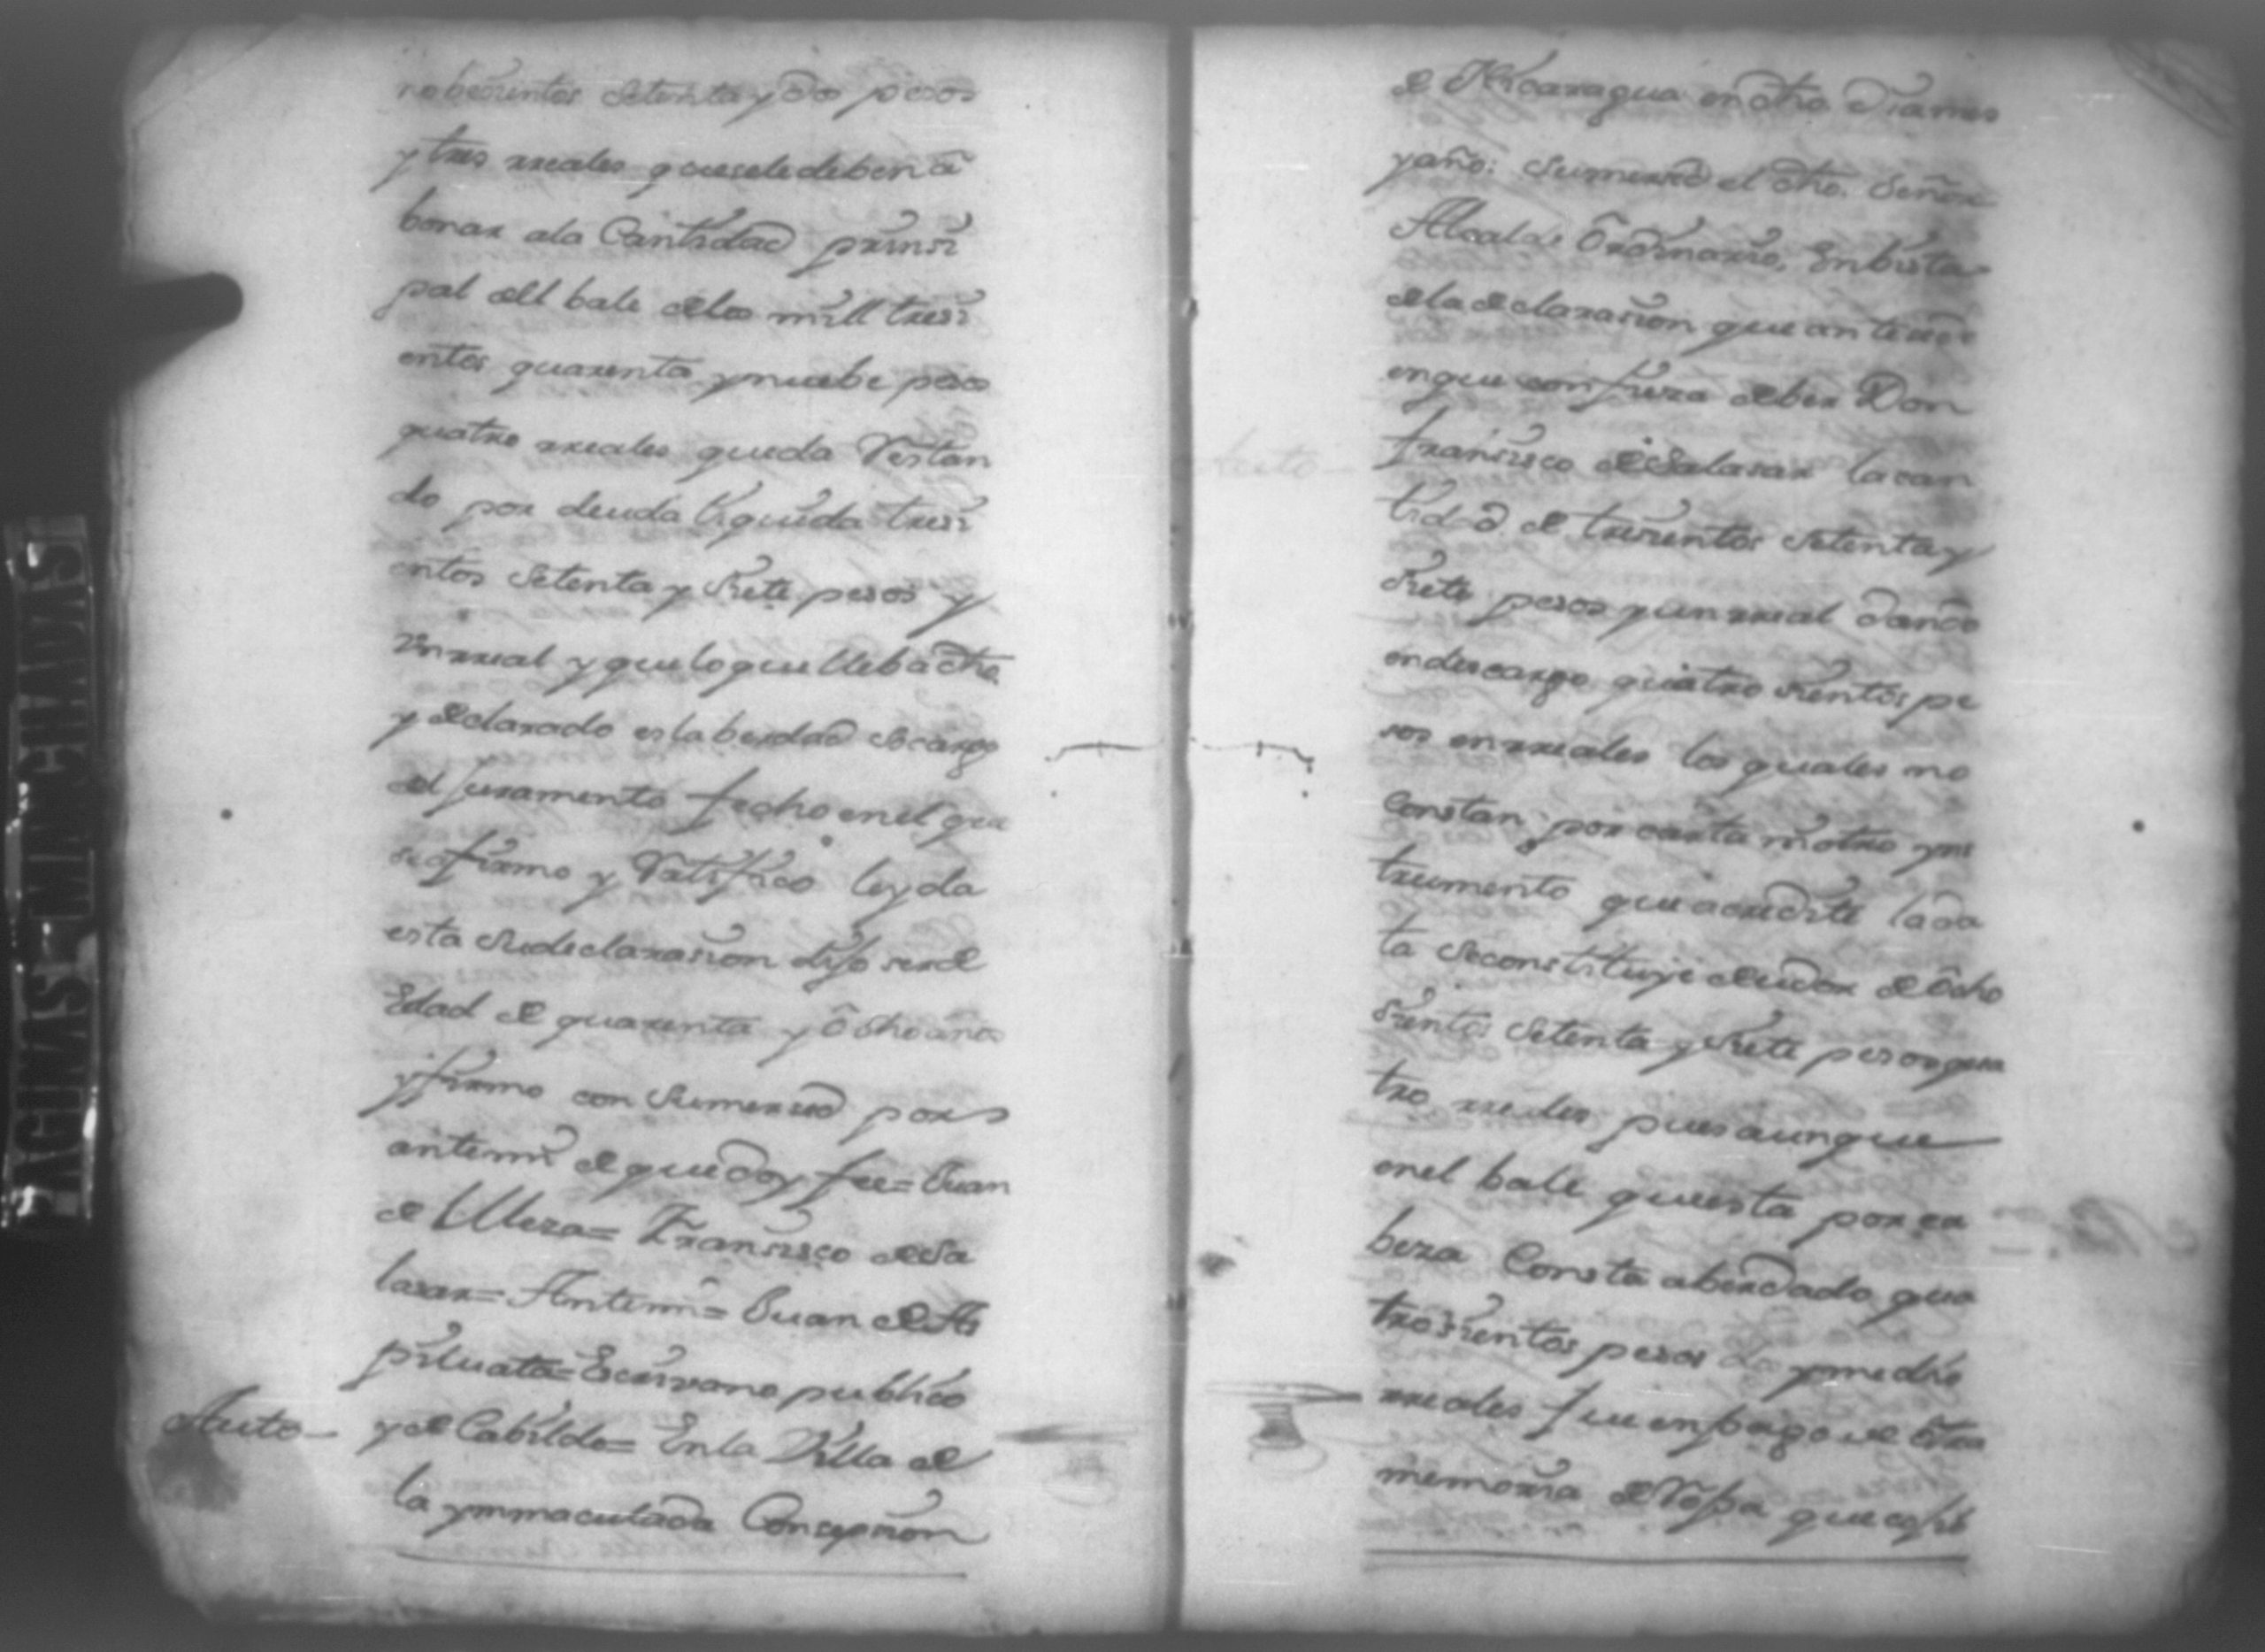 nobesientos setenta y dos pesos
y tres rreales que se le deben a
bonar a la Cantidad prinsi
pal dell bale de los mill tresi
entos quarenta y nuebe pesos
quatro rreales queda Restan
do por deuda liquida tresi
entos setenta y siete pesos y
Un rreal y que lo que lleba dho
y declarado es la berdad so cargo
del juramento fecho en el que
se afirmo y Ratifico leyda
esta su declarasion dijo ser de
Edad de quarenta y ôcho años
y firmo con su merced por
ante mi de que doy fee = Juan
de Ulloza = Fransisco de Sa
lasar = Ante mi = Juan de As
pilcuata = Escrivano publico
Auto – y de Cabildo = En la Villa de
la ymmaculada Consepsion
de Nicaragua en dho dia mes
y año: su merced el dho. Señor
Alcalde Ôrdinario, En bista
de la declarasion que antesede
en que confieza deber Don
fransisco de Salasar la can
tidad de tresientos setenta y
siete pesos y un rreal dando
en descargo quatro sientos pe
sos en rreales los quales no
Constan por carta ni otro yns
trumento que acredite la da
ta se constituye deudor de ôcho
sientos setenta y siete pesos qua
tro rreales pues aunque
en el bale que esta por ca
beza Consta aber dado qua
trosientos pesos y medio
rreales fue en pago de otra
memoria de Ropa que
PAGINAS MANCHADAS